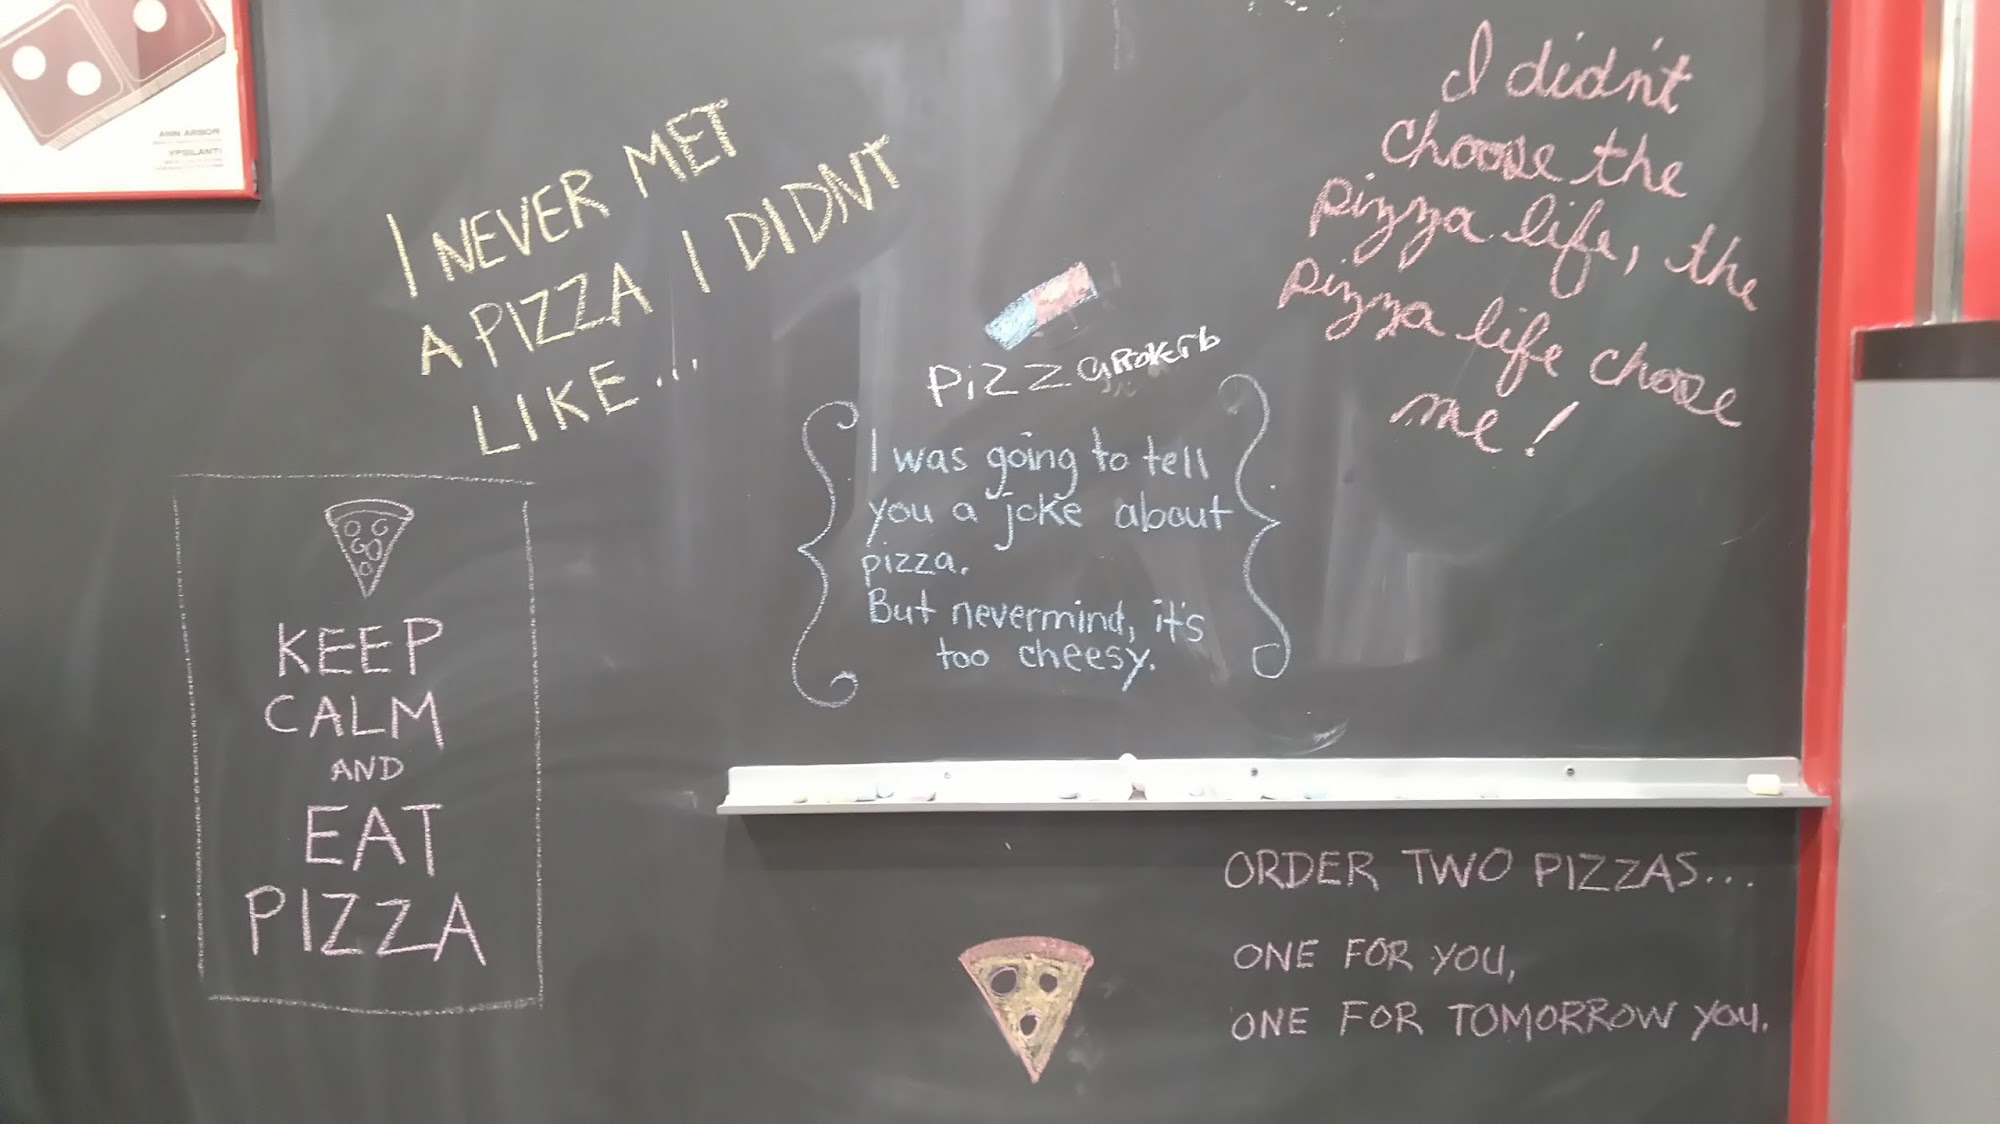 ANN ARBOR
YPSILANTI
I NEVER MET
A PIZZA I DIDNT
LIKE...
KEEP
CALM
AND
EAT
PIZZA
PiZZ
I was going to tell
you a joke about
pizza.
But nevermind, it's
too cheesy.
I didn't
choose the
pizza life, the
pizza life choose
me!
ORDER TWO PIZZAS...
ONE FOR YOU,
ONE FOR TOMORROW YOU.